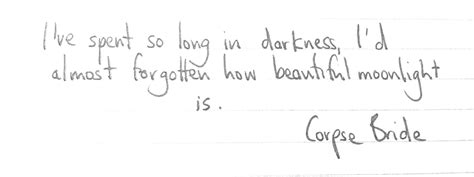 I've spent so long in darkness, I'd
almost forgotten how beautiful moonlight
is.
Corpse Bride